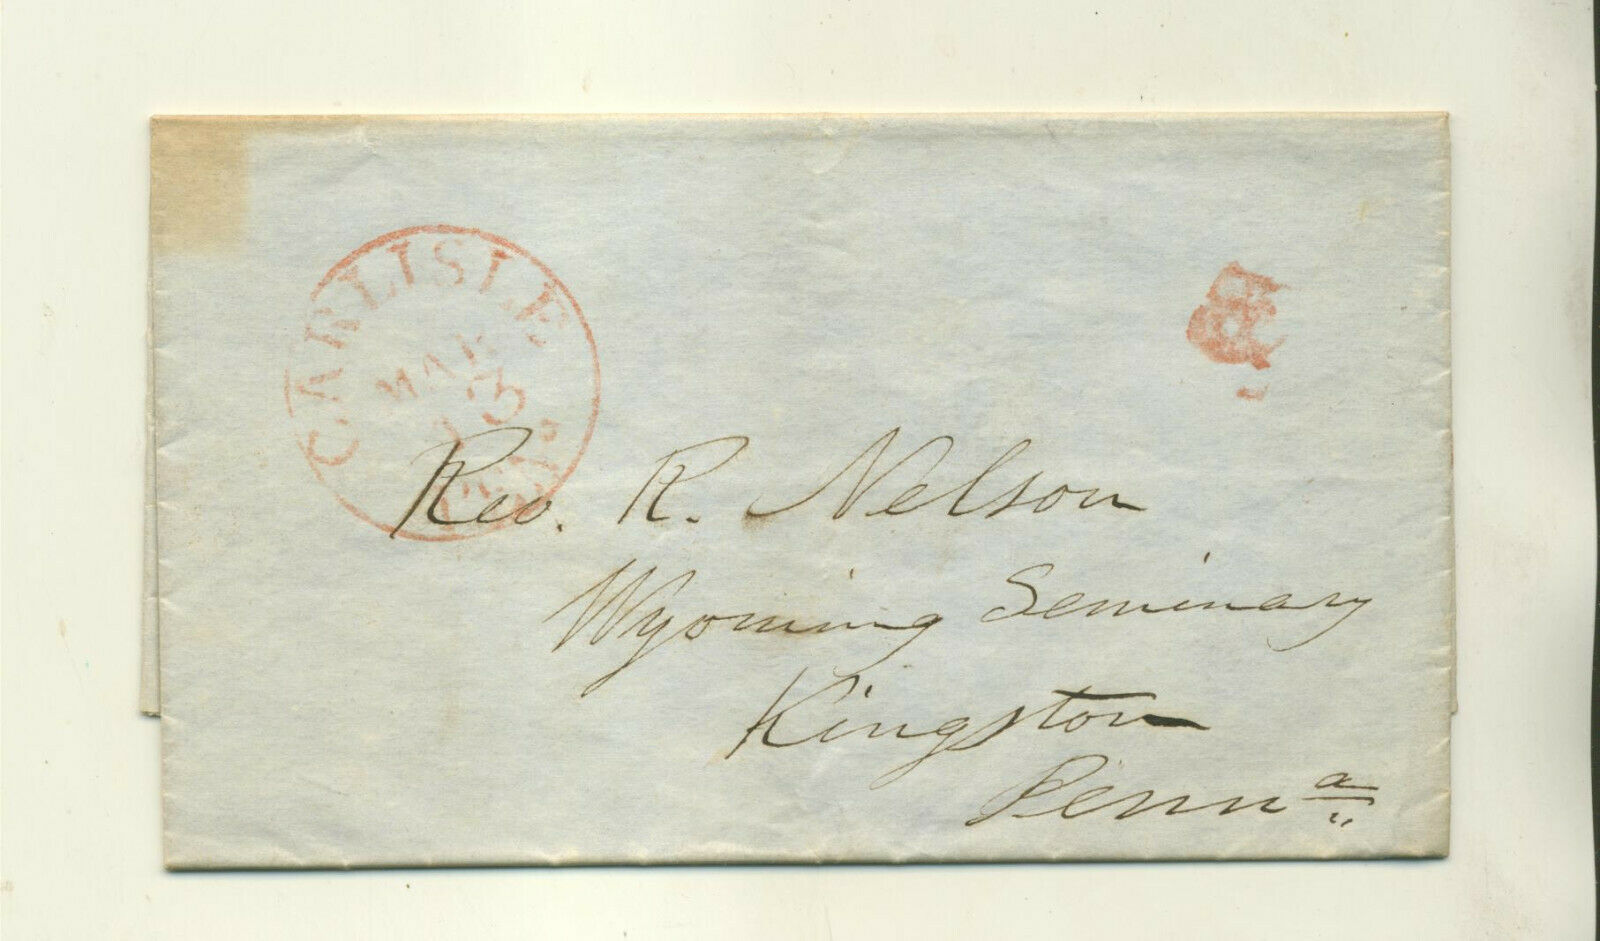 CARLISLE
MAR
13
Rev. R. Nelson
Wyoming Seminary
Kingston
Penna